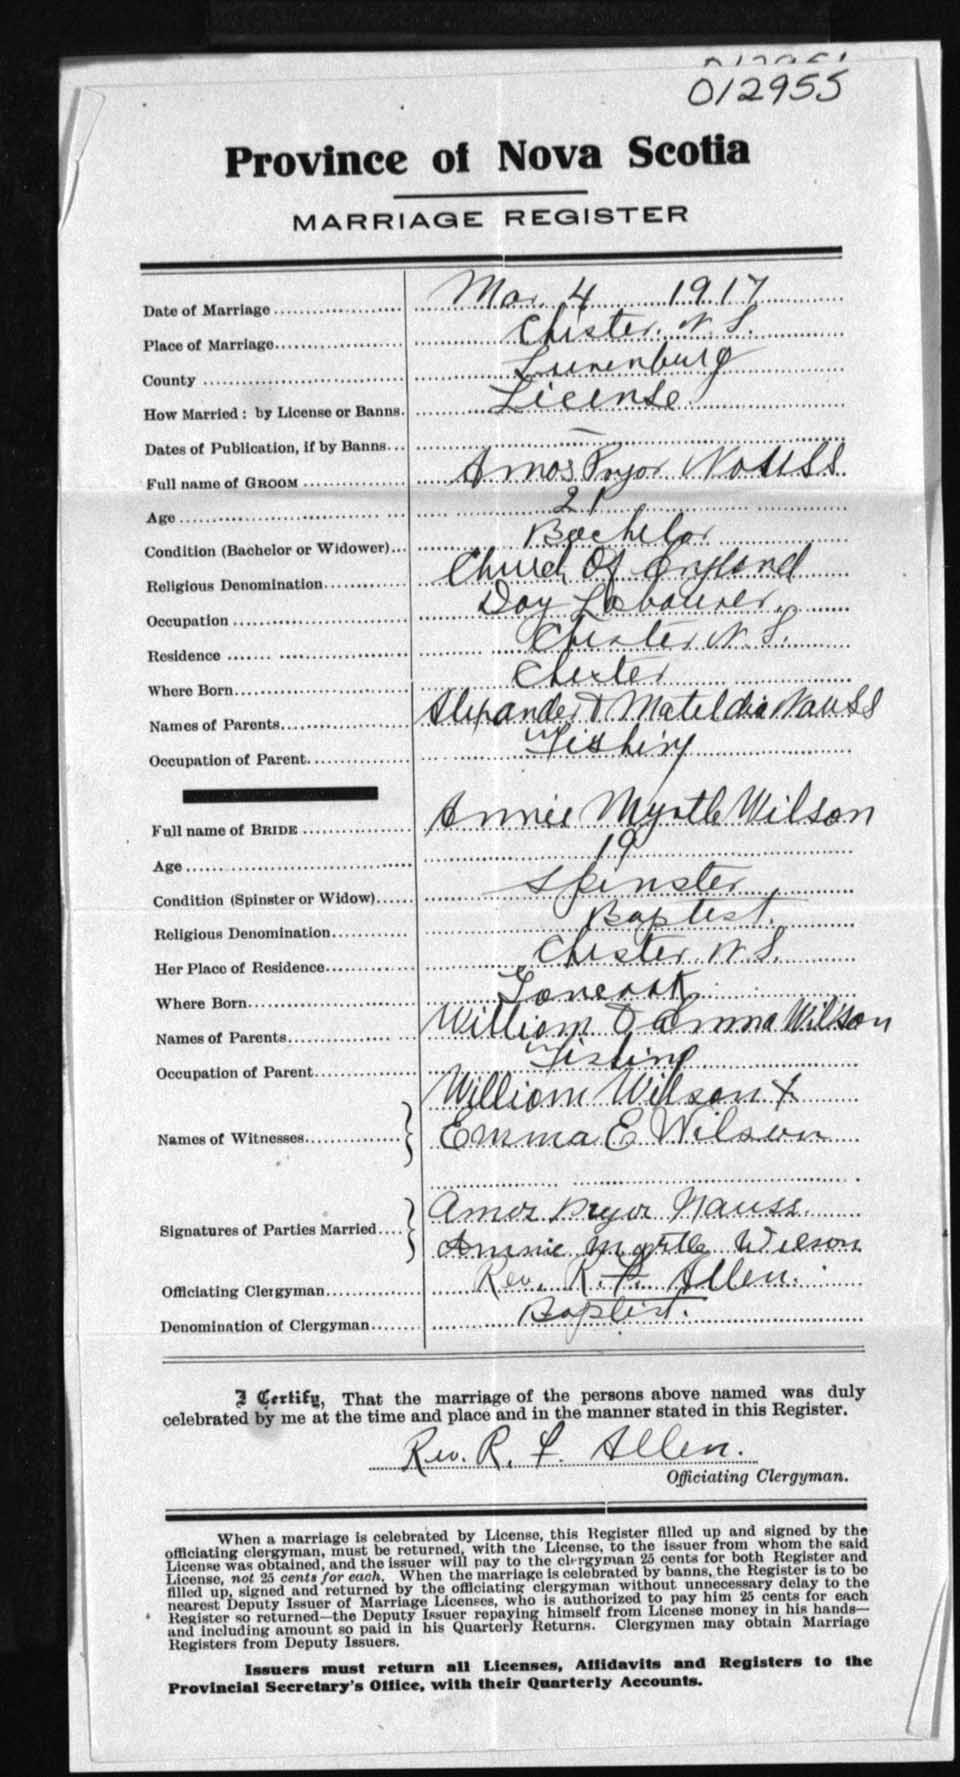 012955
Province of Nova Scotia
MARRIAGE REGISTER
Date of Marriage Mar. 4 1917
Place of Marriage Chester. N. S.
County Lunenburg
How Married: by License or Banns. License
Dates of Publication, if by Banns —
Full name of GROOM Amos Pryor Nauss
Age 21
Condition (Bachelor or Widower) Bachelor
Religious Denomination Church Of England
Occupation Day Labourer.
Residence Chester N. S.
Where Born Chester
Names of Parents Alexander & Matildia Nauss
Occupation of Parent Fishing
Full name of BRIDE Annie Myrtle Wilson
Age 19
Condition (Spinster or Widow) Spinster
Religious Denomination Baptist.
Her Place of Residence Chester. N. S.
Where Born
Names of Parents William & Emma Wilson
Occupation of Parent Fishing
William Wilson X
Names of Witnesses Emma E Wilson
Amos Pryor Nauss
Signatures of Parties Married Annie Myrtle Wilson
Officiating Clergyman Rev. R. F. Allen.
Denomination of Clergyman Baptist.
I Certify, That the marriage of the persons above named was duly
celebrated by me at the time and place and in the manner stated in this Register.
Rev. R. F. Allen.
Officiating Clergyman.
When a marriage is celebrated by License, this Register filled up and signed by the
officiating clergyman, must be returned, with the License, to the issuer from whom the said
License was obtained, and the issuer will pay to the clergyman 25 cents for both Register and
License, not 25 cents for each. When the marriage is celebrated by banns, the Register is to be
filled up, signed and returned by the officiating clergyman without unnecessary delay to the
nearest Deputy Issuer of Marriage Licenses, who is authorized to pay him 25 cents for each
Register so returned—the Deputy Issuer repaying himself from License money in his hands—
and including amount so paid in his Quarterly Returns. Clergymen may obtain Marriage
Registers from Deputy Issuers.
Issuers must return all Licenses, Affidavits and Registers to the
Provincial Secretary's Office, with their Quarterly Accounts.